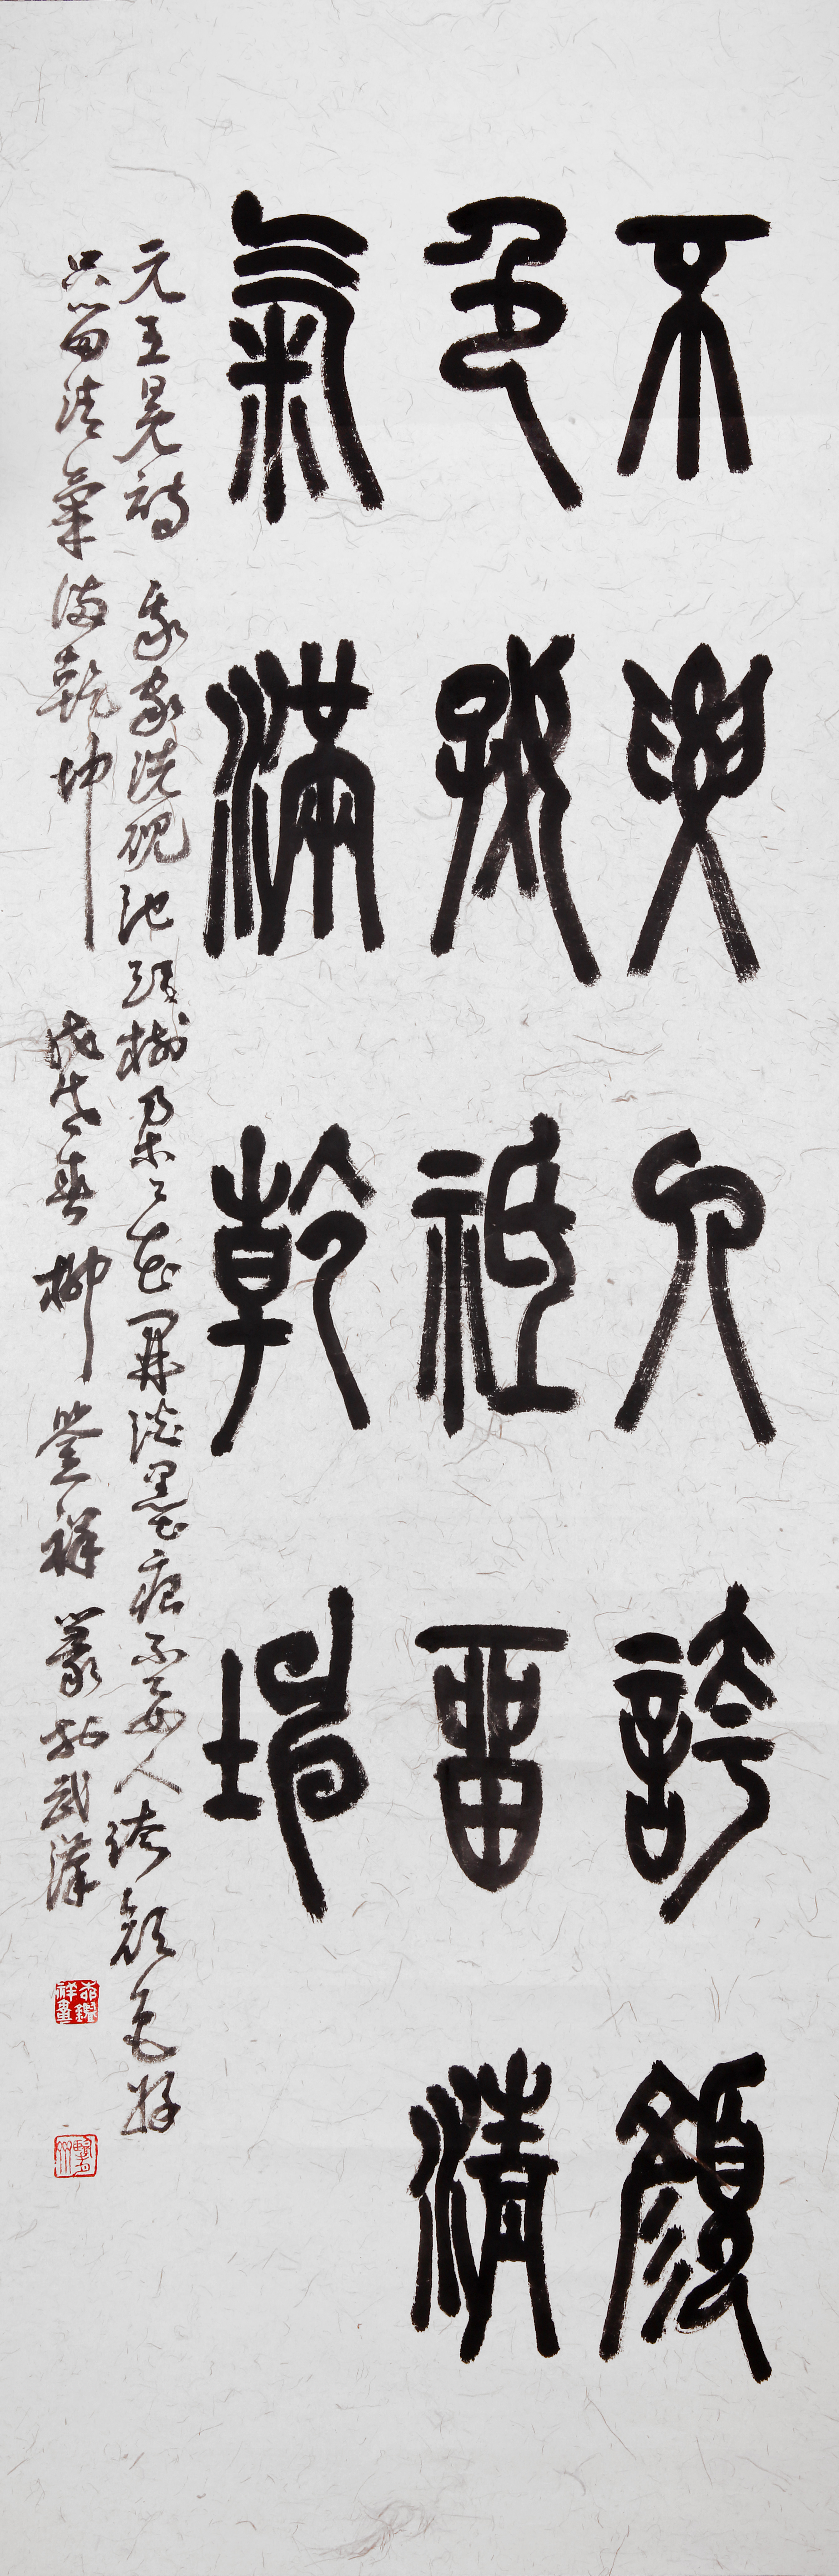 不要人誇顏
色好祇留清
氣滿乾坤
元王冕詩 我家洗硯池頭樹朵々花開淡墨痕不要人誇顏色好
只留清氣滿乾坤 戊戌春 柳祥 篆於武漢